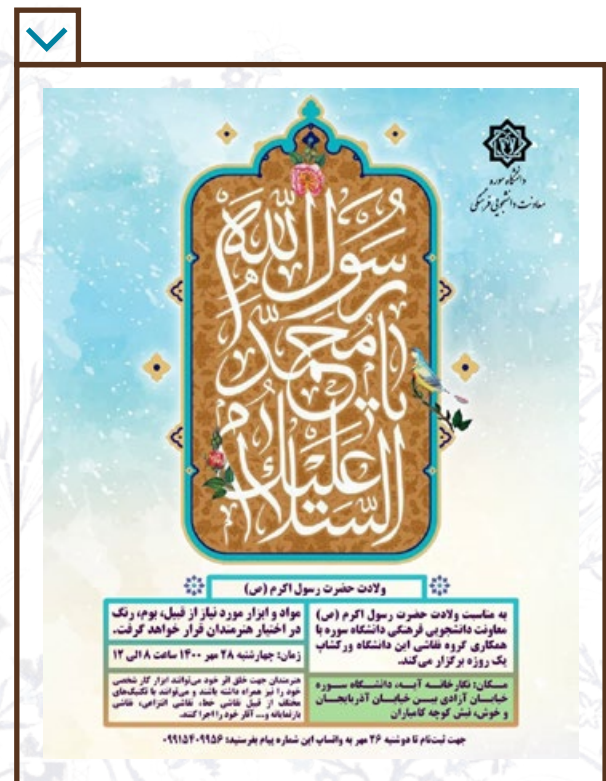 دانشگاه سوره
معاونت دانشجویی فرهنگی
السلام علیک
یا محمد
رسول الله
ولادت حضرت رسول اکرم (ص)
به مناسبت ولادت حضرت رسول اکرم (ص)
معاونت دانشجویی فرهنگی دانشگاه سوره با
همکاری گروه نقاشی این دانشگاه ورکشاپ
یک روزه برگزار می‌کند.
مکان: نگارخانه آیه، دانشگاه سوره
خیابان آزادی بین خیابان آذربایجان
و خوش، نبش کوچه کامیاران
مواد و ابزار مورد نیاز از قبیل، بوم، رنگ
در اختیار هنرمندان قرار خواهد گرفت.
زمان: چهارشنبه ۲۸ مهر ۱۴۰۰ ساعت ۸ الی ۱۲
هنرمندان جهت خلق اثر خود می‌توانند ابزار کار شخصی
خود را نیز همراه داشته باشند و می‌توانند با تکنیک‌های
مختلف از قبیل نقاشی خط، نقاشی انتزاعی، نقاشی
بازنمایانه و... آثار خود را اجرا کنند.
جهت ثبت‌نام تا دوشنبه ۲۶ مهر به واتساپ این شماره پیام بفرستید: ۰۹۹۱۵۴۰۹۹۵۶